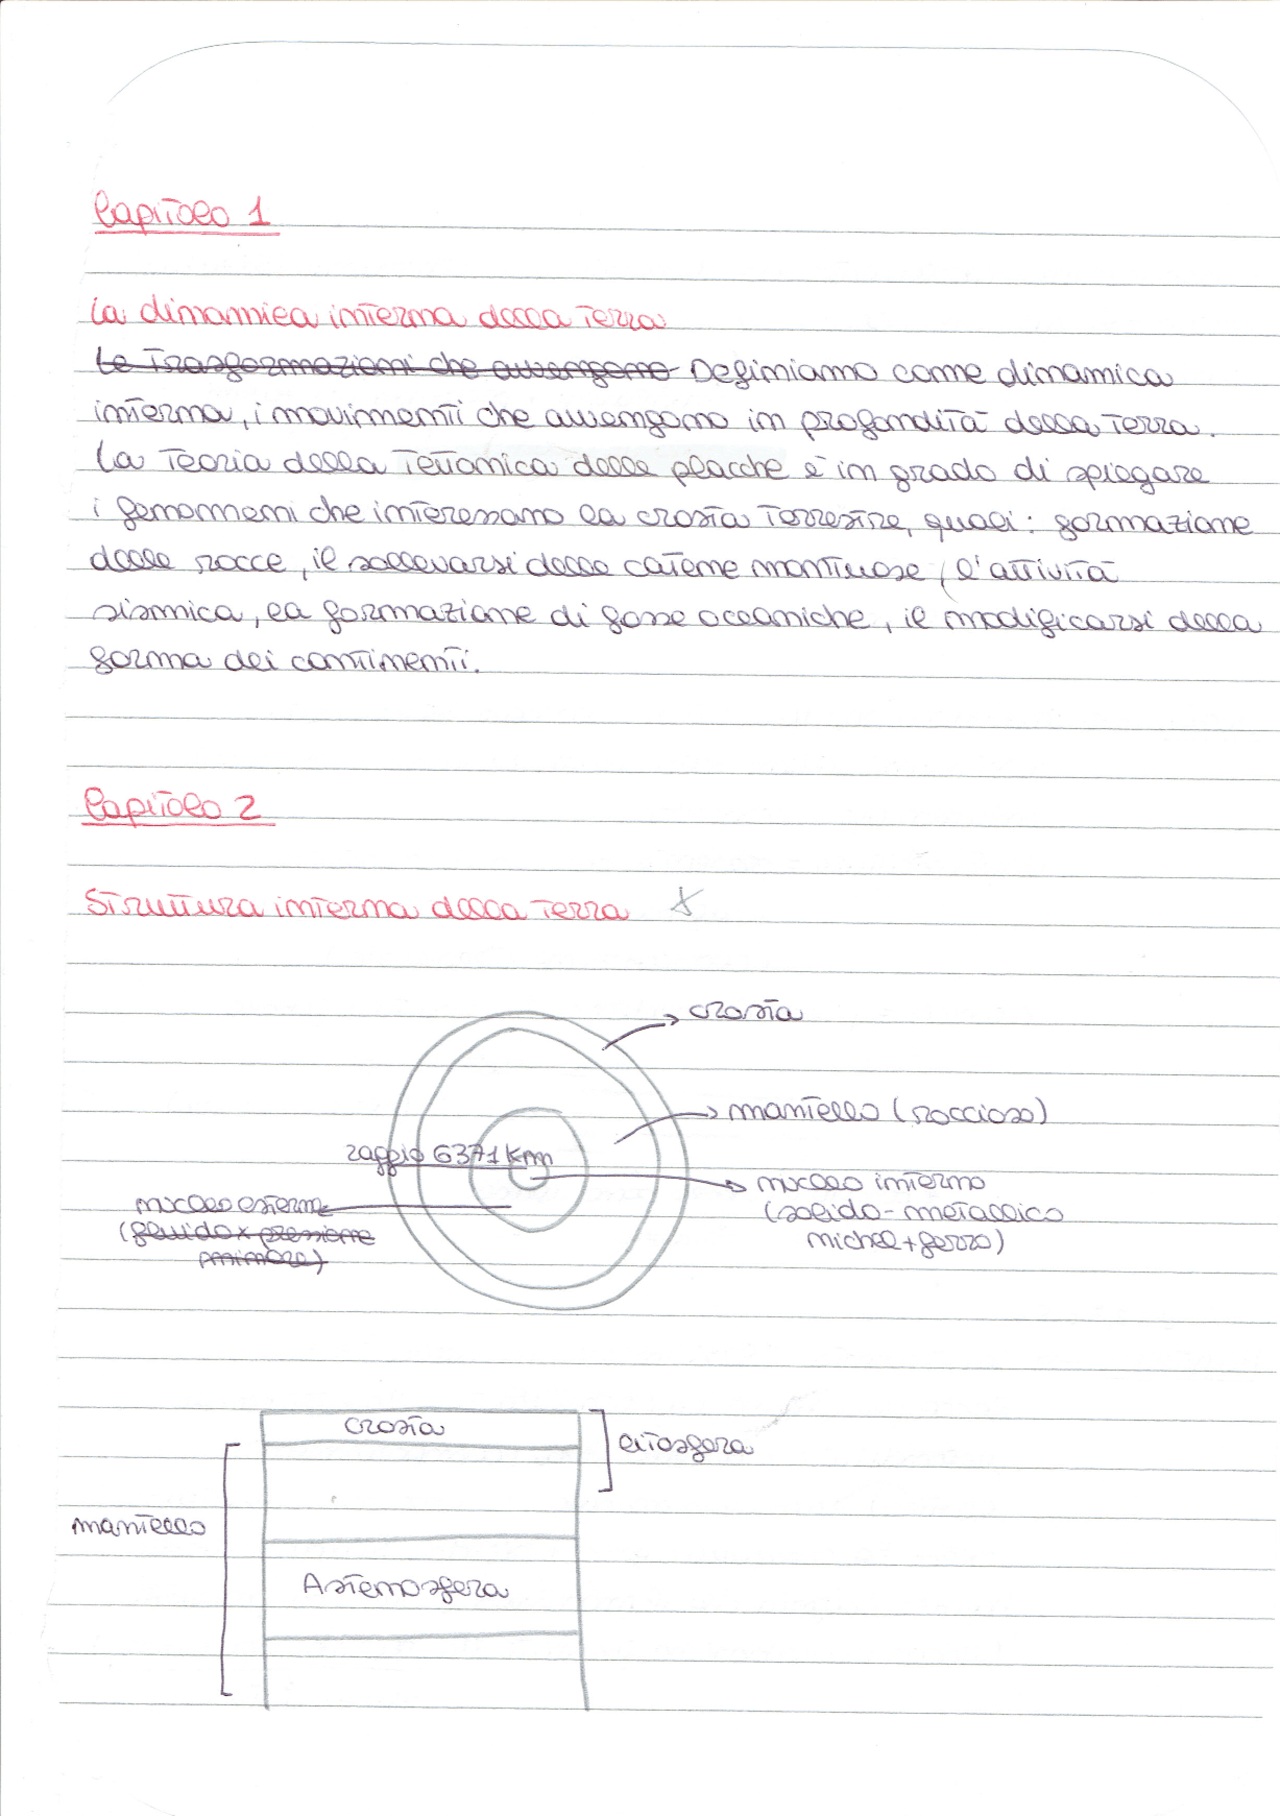 Capitolo 1
La dinamica interna della Terra
Le Trasformazioni che avvengono Definiamo come dinamica
interna, i movimenti che avvengono in profondità della Terra.
La Teoria della Tettonica delle placche è in grado di spiegare
i fenomeni che interessano la crosta Terrestre, quali: formazione
delle rocce, il sollevarsi delle catene montuose, l'attività
sismica, la formazione di fosse oceaniche, il modificarsi della
forma dei continenti.
Capitolo 2
Struttura interna della Terra
crosta
mantello (roccioso)
raggio 6371 km
nucleo interno
(solido-metallico
nichel+ferro)
nucleo esterno
(fluido x pressione
minore)
crosta
litosfera
mantello
Astenosfera